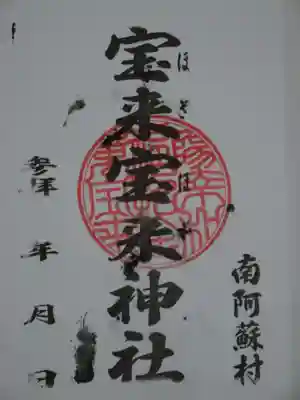 南阿蘇村
ほぎほぎ
宝来宝来神社
参拝 年 月 日